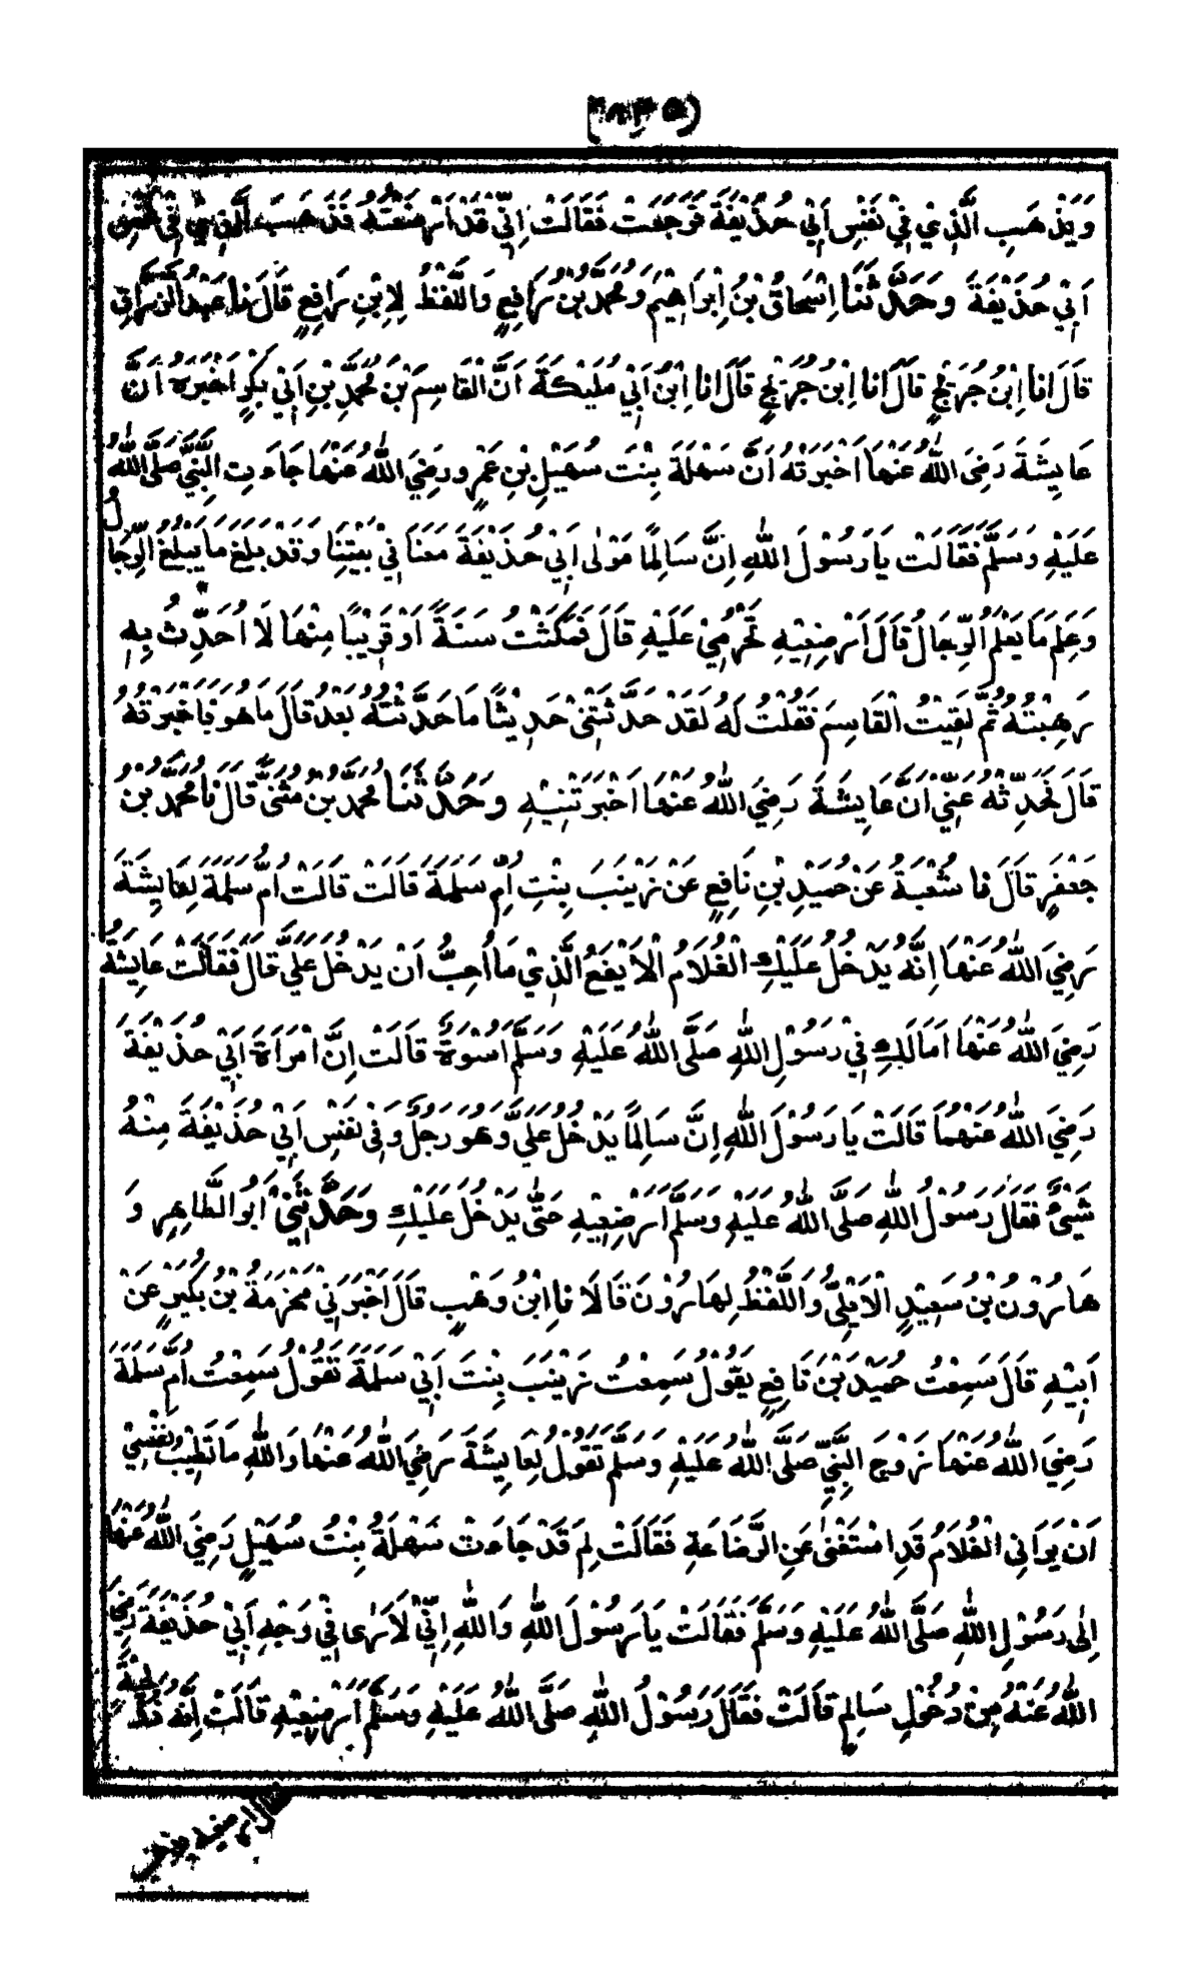 وَيَذْهَبِ الَّذِيْ فِيْ نَفْسِ اَبِيْ حُذَيْفَةَ فَرَجَعَتْ فَقَالَتْ اِنِّيْ قَدْ اَرْضَعْتُهُ فَذَهَبَ الَّذِيْ فِيْ نَفْسِ
اَبِيْ حُذَيْفَةَ وَحَدَّثَنَا اِسْحَاقُ بْنُ اِبْرَاهِيْمَ وَمُحَمَّدُ بْنُ رَافِعٍ وَاللَّفْظُ لِابْنِ رَافِعٍ قَالَ نا عَبْدُ الرَّزَّاقِ
قَالَ انا اِبْنُ جُرَيْجٍ قَالَ انا اِبْنُ جُرَيْجٍ قَالَ انا اِبْنُ اَبِيْ مُلَيْكَةَ اَنَّ الْقَاسِمَ بْنَ مُحَمَّدِ بْنِ اَبِيْ بَكْرٍ اَخْبَرَهُ اَنَّ
عَايِشَةَ رَضِيَ اللهُ عَنْهَا اَخْبَرَتْهُ اَنَّ سَهْلَةَ بِنْتَ سُهَيْلِ بْنِ عَمْرٍو رَضِيَ اللهُ عَنْهَا جَاءَتِ النَّبِيَّ صَلَّى اللهُ
عَلَيْهِ وَسَلَّمَ فَقَالَتْ يَا رَسُوْلَ اللهِ اِنَّ سَالِمًا مَوْلٰى اَبِيْ حُذَيْفَةَ مَعَنَا فِيْ بَيْتِنَا وَقَدْ بَلَغَ مَا يَبْلُغُ الرِّجَالُ
وَعَلِمَ مَا يَعْلَمُ الرِّجَالُ قَالَ اَرْضِعِيْهِ تَحْرُمِيْ عَلَيْهِ قَالَ فَمَكَثْتُ سَنَةً اَوْ قَرِيْبًا مِنْهَا لَا اُحَدِّثُ بِهِ
رَهِبْتُهُ ثُمَّ لَقِيْتُ الْقَاسِمَ فَقُلْتُ لَهُ لَقَدْ حَدَّثْتَنِيْ حَدِيْثًا مَا حَدَّثْتُهُ بَعْدُ قَالَ مَا هُوَ فَاَخْبَرْتُهُ
قَالَ فَحَدِّثْهُ عَنِّيْ اَنَّ عَايِشَةَ رَضِيَ اللهُ عَنْهَا اَخْبَرَتْنِيْهِ وَحَدَّثَنَا مُحَمَّدُ بْنُ مُثَنَّى قَالَ نَا مُحَمَّدُ بْنُ
جَعْفَرٍ قَالَ نا شُعْبَةُ عَنْ حُمَيْدِ بْنِ نَافِعٍ عَنْ زَيْنَبَ بِنْتِ اُمِّ سَلَمَةَ قَالَتْ قَالَتْ اُمُّ سَلَمَةَ لِعَايِشَةَ
رَضِيَ اللهُ عَنْهَا اِنَّهُ يَدْخُلُ عَلَيْكِ الْغُلَامُ الْاَيْفَعُ الَّذِيْ مَا اُحِبُّ اَنْ يَدْخُلَ عَلَيَّ قَالَ فَقَالَتْ عَايِشَةُ
رَضِيَ اللهُ عَنْهَا اَمَا لَكِ فِيْ رَسُوْلِ اللهِ صَلَّى اللهُ عَلَيْهِ وَسَلَّمَ اُسْوَةٌ قَالَتْ اِنَّ امْرَاَةَ اَبِيْ حُذَيْفَةَ
رَضِيَ اللهُ عَنْهُمَا قَالَتْ يَا رَسُوْلَ اللهِ اِنَّ سَالِمًا يَدْخُلُ عَلَيَّ وَهُوَ رَجُلٌ وَفِيْ نَفْسِ اَبِيْ حُذَيْفَةَ مِنْهُ
شَيْءٌ فَقَالَ رَسُوْلُ اللهِ صَلَّى اللهُ عَلَيْهِ وَسَلَّمَ اَرْضِعِيْهِ حَتّٰى يَدْخُلَ عَلَيْكِ وَحَدَّثَنِيْ اَبُو الطَّاهِرِ وَ
هَارُوْنُ بْنُ سَعِيْدٍ الْاَيْلِيُّ وَاللَّفْظُ لِهَارُوْنَ قَالَا نا اِبْنُ وَهْبٍ قَالَ اَخْبَرَنِيْ مَخْرَمَةُ بْنُ بُكَيْرٍ عَنْ
اَبِيْهِ قَالَ سَمِعْتُ حُمَيْدَ بْنَ نَافِعٍ يَقُوْلُ سَمِعْتُ زَيْنَبَ بِنْتَ اَبِيْ سَلَمَةَ تَقُوْلُ سَمِعْتُ اُمَّ سَلَمَةَ
رَضِيَ اللهُ عَنْهَا زَوْجَ النَّبِيِّ صَلَّى اللهُ عَلَيْهِ وَسَلَّمَ تَقُوْلُ لِعَايِشَةَ رَضِيَ اللهُ عَنْهَا وَاللهِ مَا تَطِيْبُ نَفْسِيْ
اَنْ يَرَانِي الْغُلَامُ قَدِ اسْتَغْنٰى عَنِ الرَّضَاعَةِ فَقَالَتْ لِمَ قَدْ جَاءَتْ سَهْلَةُ بِنْتُ سُهَيْلٍ رَضِيَ اللهُ عَنْهَا
اِلٰى رَسُوْلِ اللهِ صَلَّى اللهُ عَلَيْهِ وَسَلَّمَ فَقَالَتْ يَا رَسُوْلَ اللهِ وَاللهِ اِنِّيْ لَاَرٰى فِيْ وَجْهِ اَبِيْ حُذَيْفَةَ رَضِيَ
اللهُ عَنْهُ مِنْ دُخُوْلِ سَالِمٍ قَالَتْ فَقَالَ رَسُوْلُ اللهِ صَلَّى اللهُ عَلَيْهِ وَسَلَّمَ اَرْضِعِيْهِ قَالَتْ اِنَّهُ ذُوْ لِحْيَةٍ
قال ارضعيه يذهب